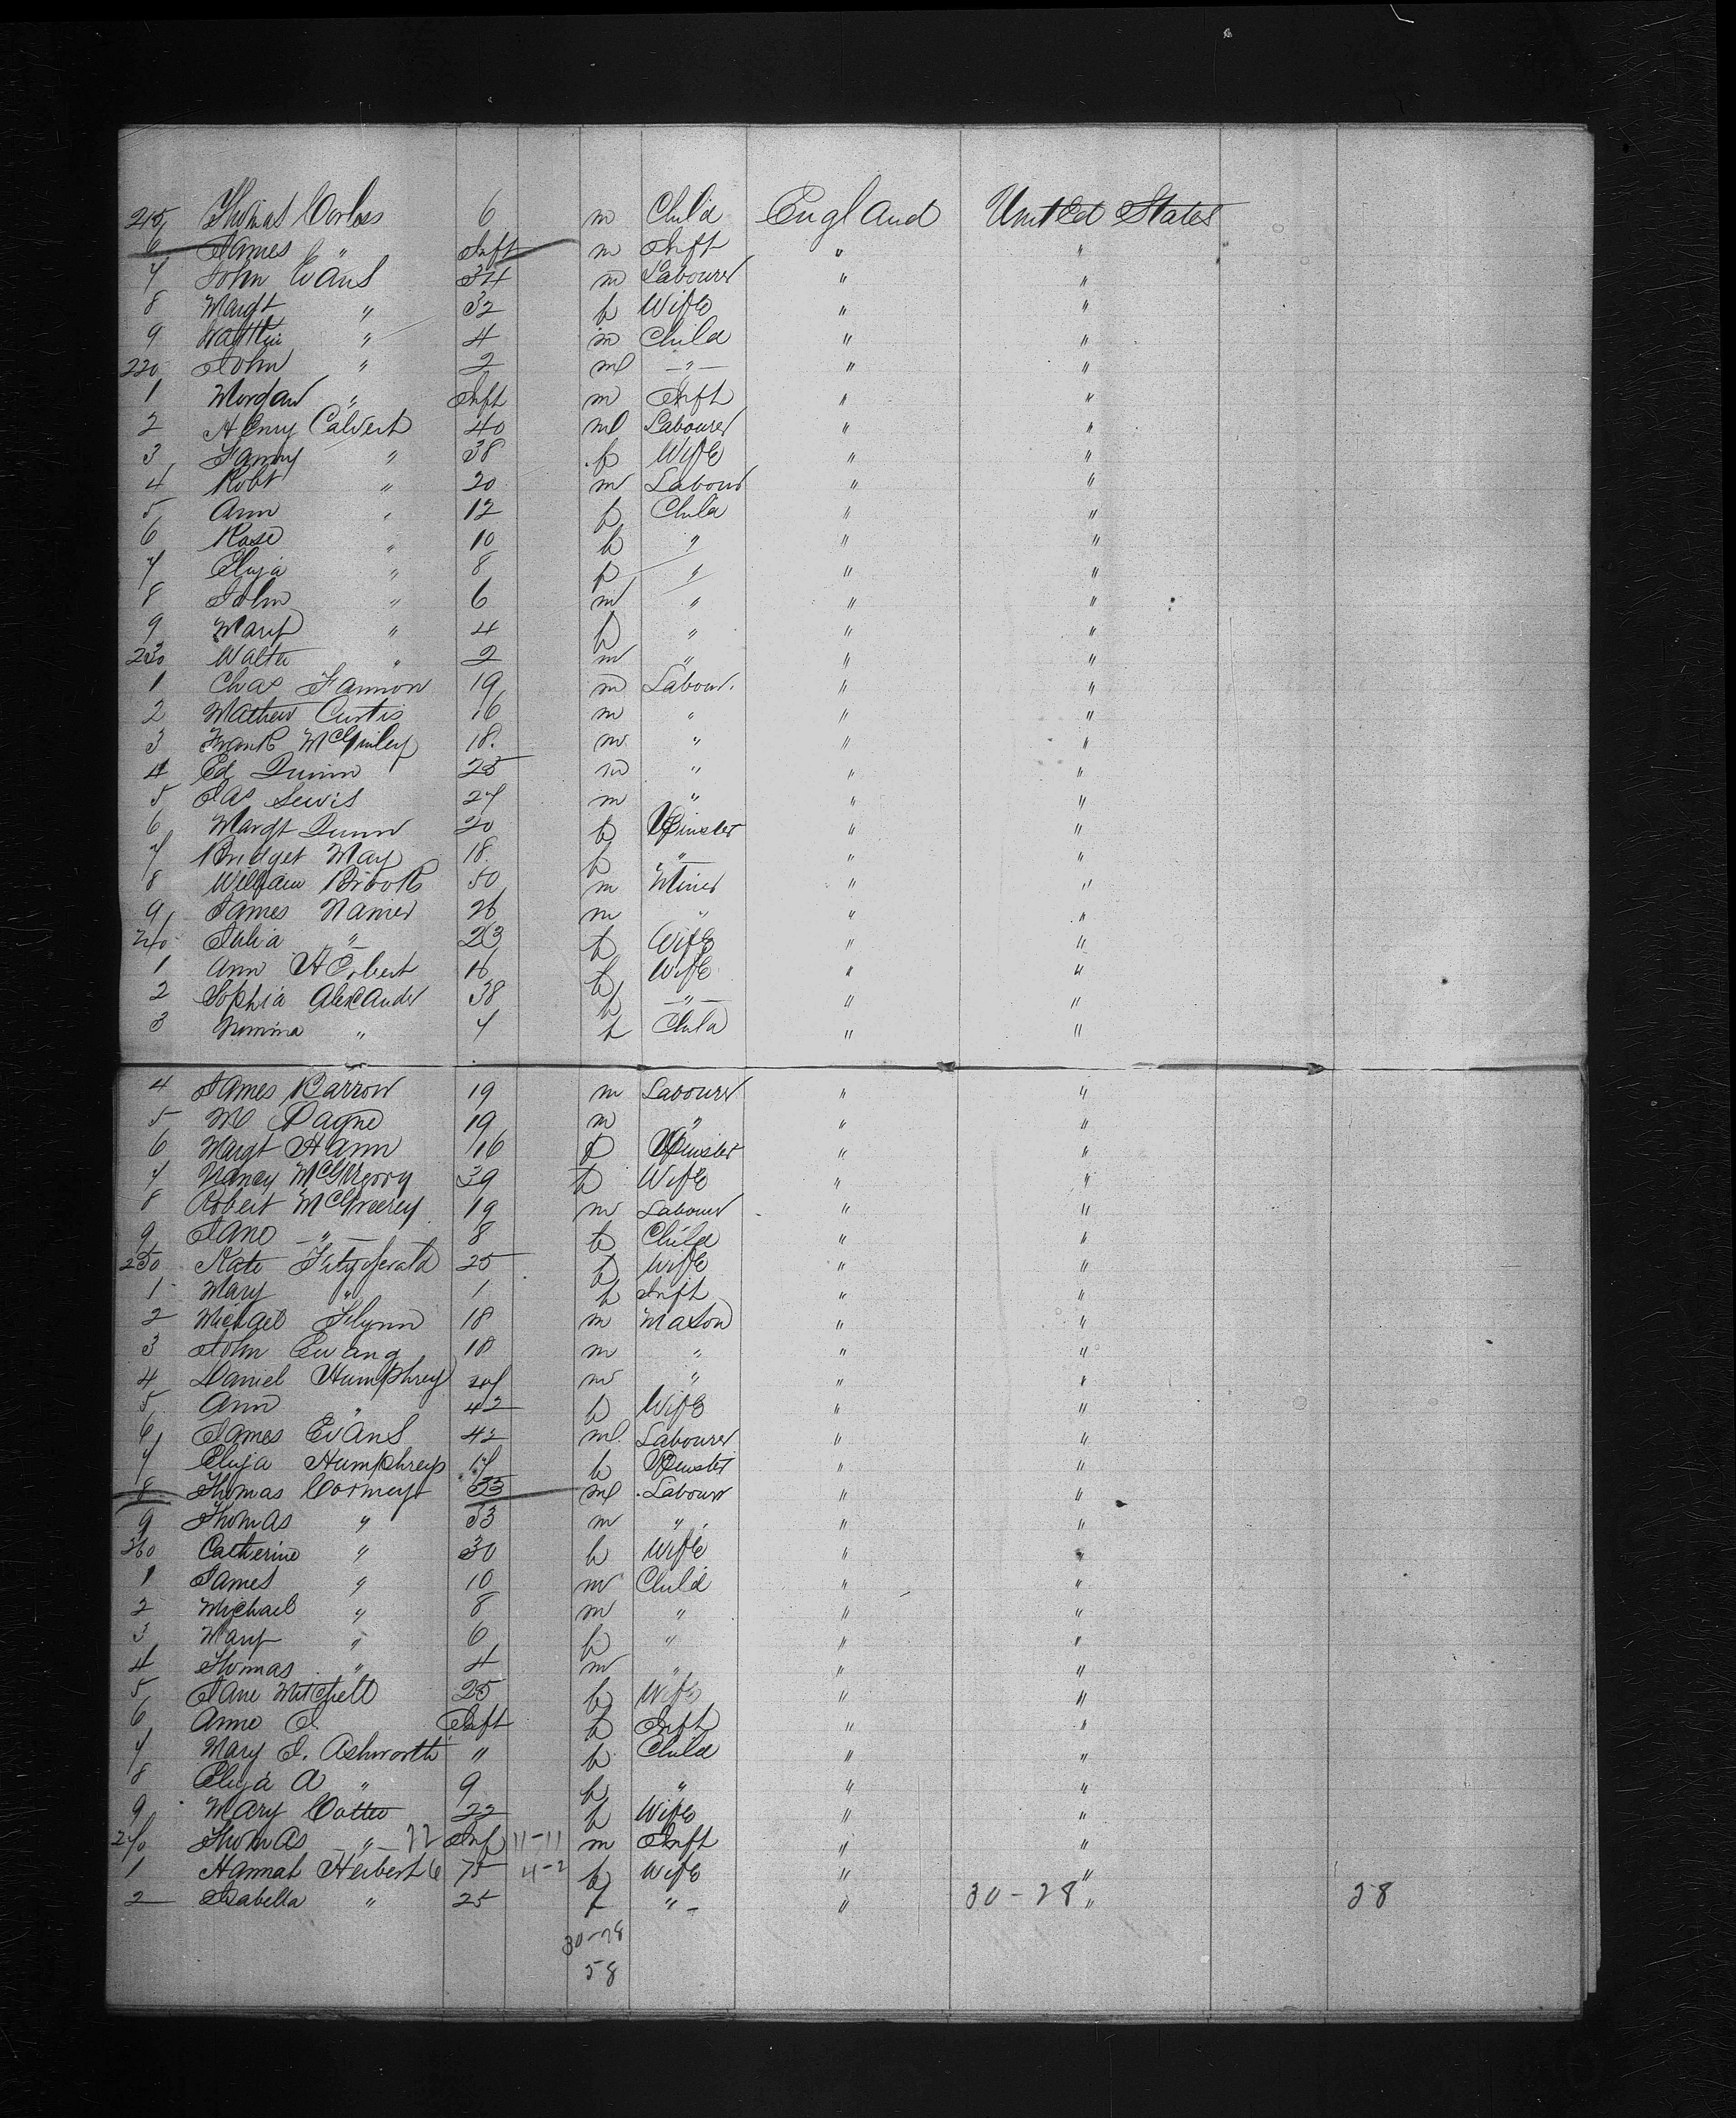 215 Thomas Corless 6 m Child England United States
6 James " Inft m Inft " "
7 John Evans 34 m Labourer " "
8 Margt " 32 f Wife " "
9 " 4 m Child " "
220 John " 2 ml —"— " "
1 Morgan " Inft m Inft " "
2 Henry Calvert 40 ml Labourer " "
3 Fanny " 38 f Wife " "
4 Robt " 20 m Labour " "
5 Ann " 12 f Child " "
6 Rose " 10 f " " "
7 Eliza " 8 f " " "
8 John " 6 m " " "
9 Mary " 4 f " " "
230 Walter " 2 m " " "
1 Chas Fannon 19 m Labour. " "
2 Mathew Curtis 16 m " " "
3 Frank McGinley 18. m " " "
4 Ed Quinn 25 m " " "
5 Jas Lewis 27 m " " "
6 Margt Quinn 20 f Spinster " "
7 Bridget May 18. f —"— " "
8 William Brook 50 m Miner " "
9 James Namer 26 m " " "
240 Julia —"— 23 f Wife " "
1 Ann Herbert 16 f Wife " "
2 Sophia Alexander 38 f —"— " "
3 " 7 f Child " "
4 James Barrow 19 m Labourer " "
5 Payne 19 m " " "
6 Margt Hann 16 f Spinster " "
7 Nancy McGregory 39 f Wife " "
8 Robert McGreery 19 m Labour " "
9 Jane —"— 8 f Child " "
250 Kate Fitzgerald 25 f Wife " "
1 Mary " 1 f Inft " "
2 Michael Flynn 18 m Mason " "
3 John Evans 18 m " " "
4 Daniel Humphrey 47 m " " "
5 Ann " 42 f Wife " "
6 James Evans 42 ml. Labourer " "
7 Eliza Humphreys 17 f Spinster " "
8 Thomas Cormey 33 ml Labour " "
9 Thomas " 33 m " " "
260 Catherine " 30 f Wife " "
1 James " 10 m Child " "
2 Michael " 8 m " " "
3 Mary " 6 f " " "
4 Thomas " 4 m " " "
5 Jane Mitchell 25 f Wife " "
6 Anne E. Inft f Inft " "
7 Mary E. Ashworth " f Child " "
8 Eliza A " 9 f " " "
9 Mary Cotter 22 f Wife " "
270 Thomas —"— 22 Inf 11-11 m Inft " "
1 Hannah Herbert 6 75 4-2 f Wife " "
2 Isabella " 25 f "- " 30-28 " 58
30-28
58